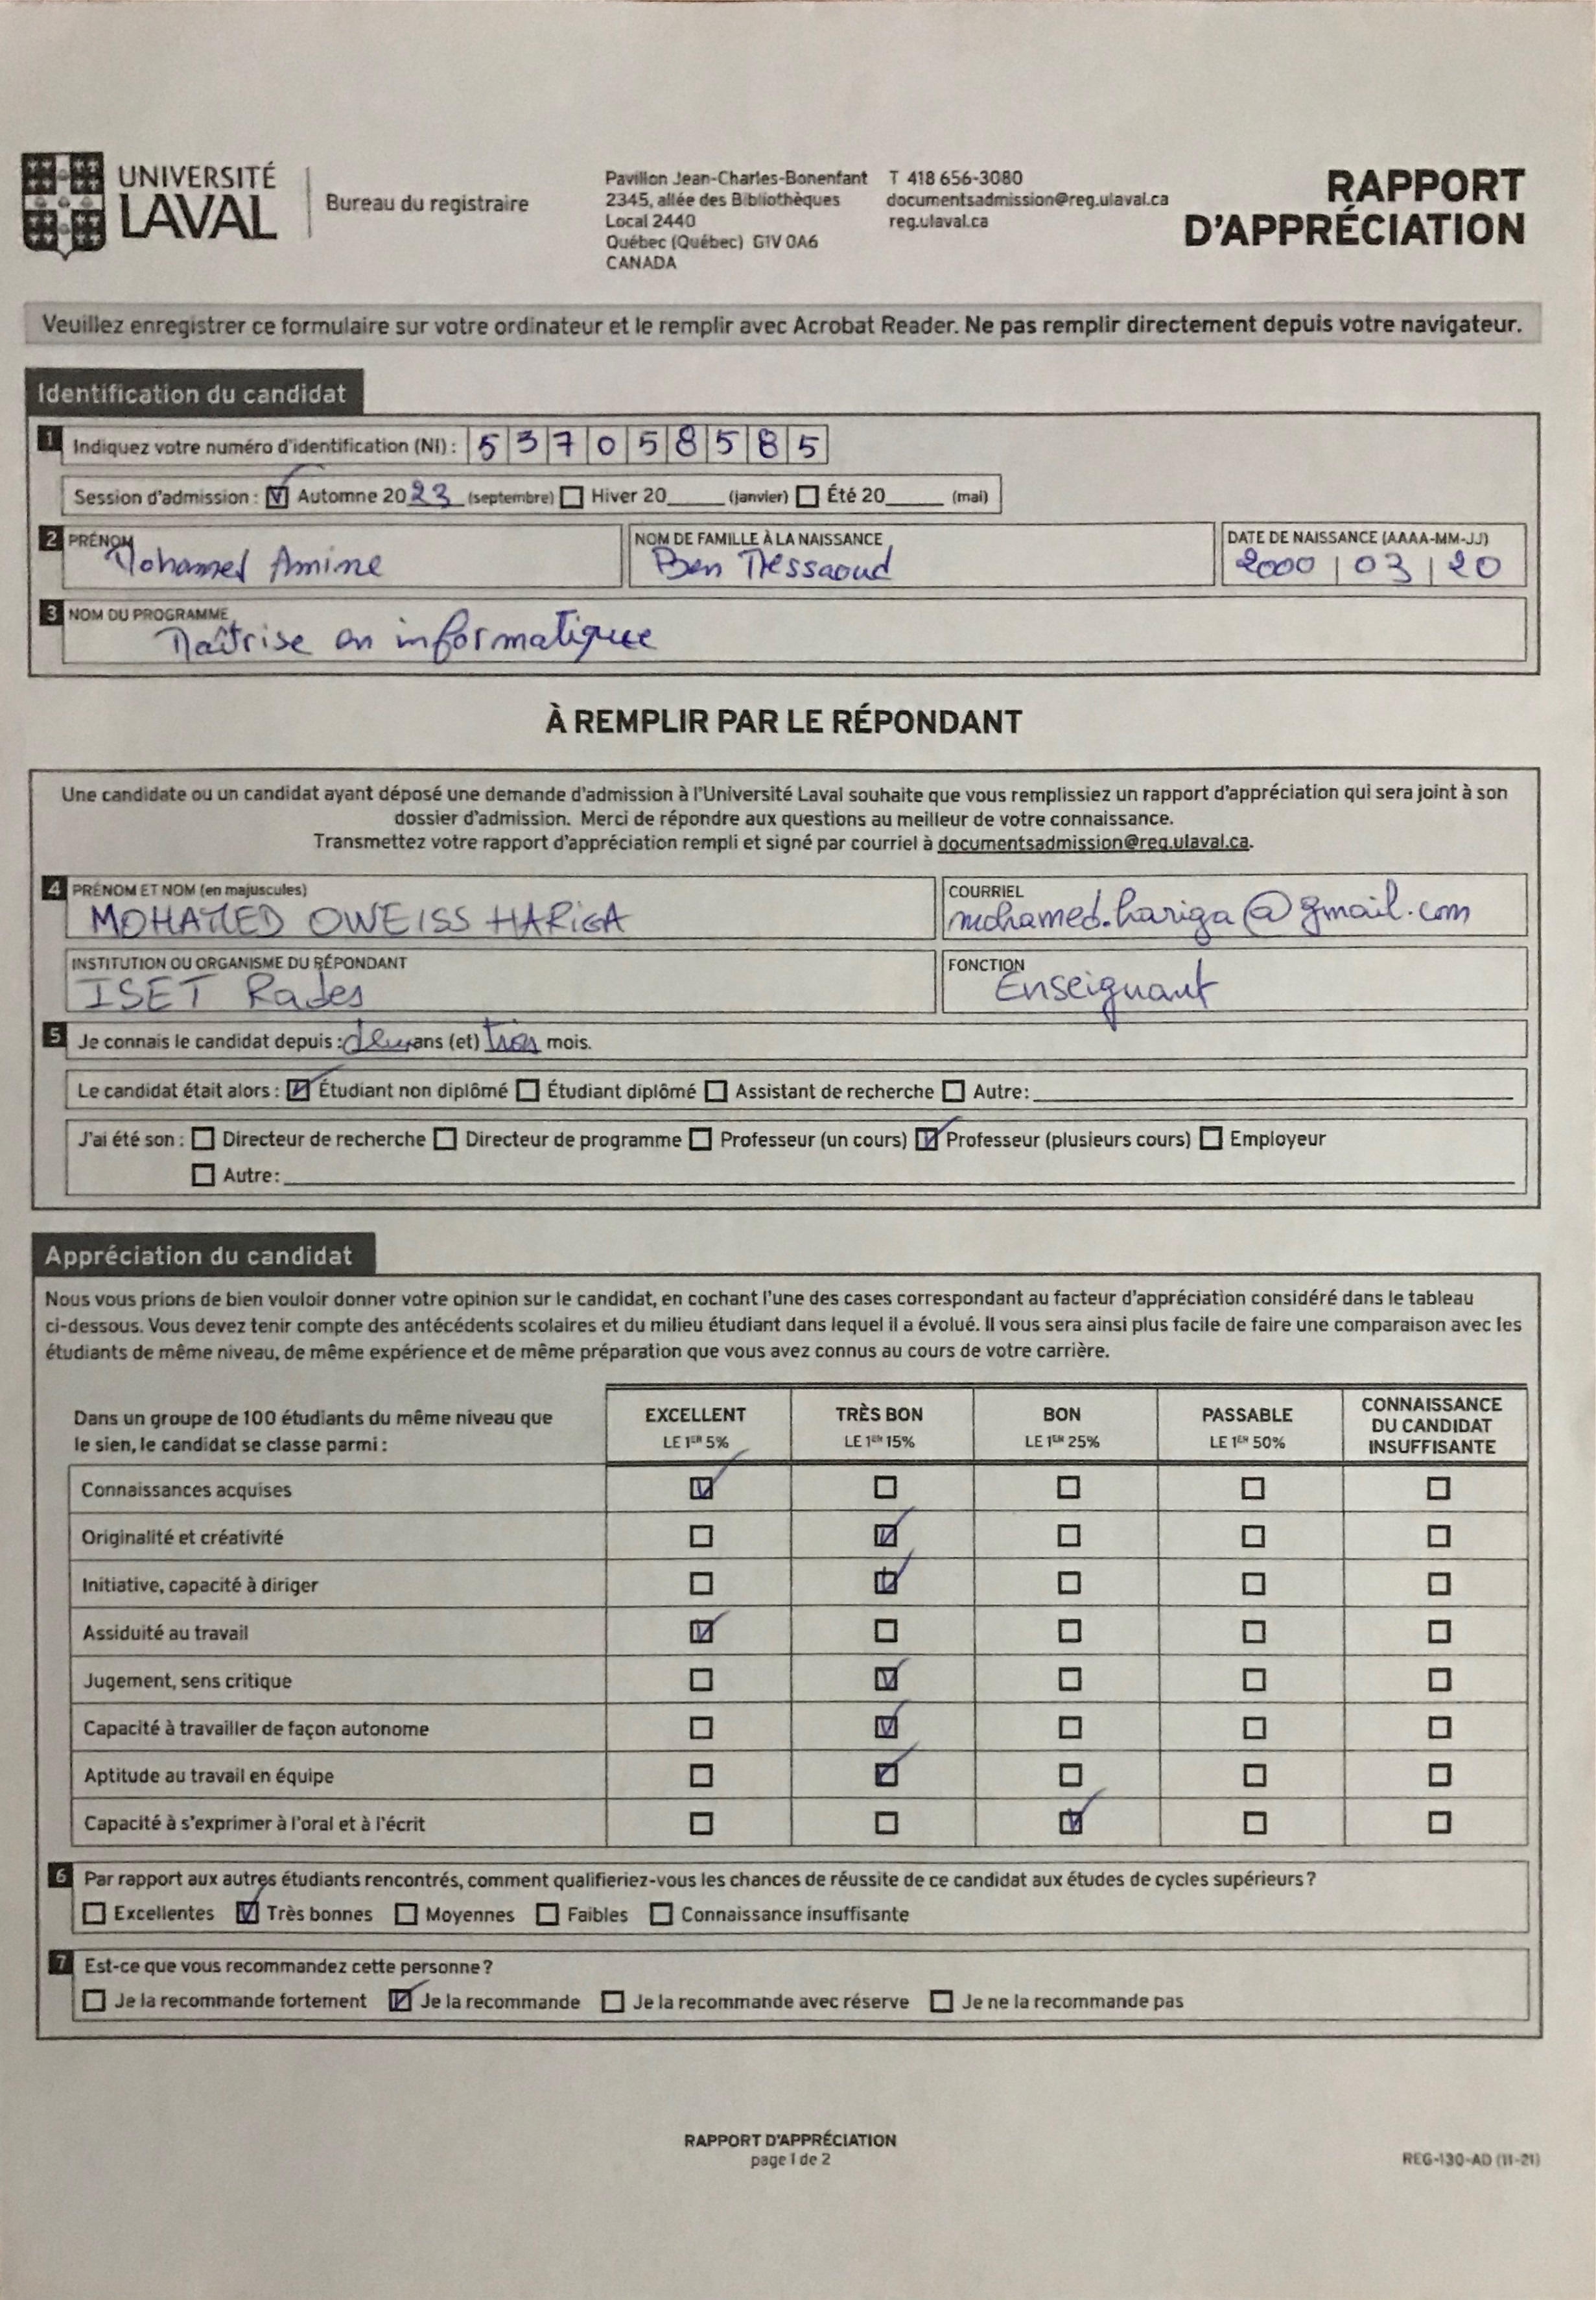 UNIVERSITÉ
LAVAL
Bureau du registraire
Pavillon Jean-Charles-Bonenfant
2345, allée des Bibliothèques
Local 2440
Québec (Québec) G1V 0A6
CANADA
T 418 656-3080
documentsadmission@reg.ulaval.ca
reg.ulaval.ca
RAPPORT
D'APPRÉCIATION
Veuillez enregistrer ce formulaire sur votre ordinateur et le remplir avec Acrobat Reader. Ne pas remplir directement depuis votre navigateur.
Identification du candidat
1 Indiquez votre numéro d'identification (NI) : 5 3 7 0 5 8 5 8 5
Session d'admission : Automne 2023 (septembre) Hiver 20____ (janvier) Été 20____ (mai)
2 PRÉNOM
Mohamed Amine
NOM DE FAMILLE À LA NAISSANCE
Ben Messaoud
DATE DE NAISSANCE (AAAA-MM-JJ)
2000 | 03 | 20
3 NOM DU PROGRAMME
Maîtrise en informatique
À REMPLIR PAR LE RÉPONDANT
Une candidate ou un candidat ayant déposé une demande d'admission à l'Université Laval souhaite que vous remplissiez un rapport d'appréciation qui sera joint à son
dossier d'admission. Merci de répondre aux questions au meilleur de votre connaissance.
Transmettez votre rapport d'appréciation rempli et signé par courriel à documentsadmission@reg.ulaval.ca.
4 PRÉNOM ET NOM (en majuscules)
MOHAMED OWEISS HARIGA
COURRIEL
mohamed.hariga@gmail.com
INSTITUTION OU ORGANISME DU RÉPONDANT
ISET Rades
FONCTION
Enseignant
5 Je connais le candidat depuis : deux ans (et) trois mois.
Le candidat était alors : Étudiant non diplômé Étudiant diplômé Assistant de recherche Autre :
J'ai été son : Directeur de recherche Directeur de programme Professeur (un cours) Professeur (plusieurs cours) Employeur
Autre :
Appréciation du candidat
Nous vous prions de bien vouloir donner votre opinion sur le candidat, en cochant l'une des cases correspondant au facteur d'appréciation considéré dans le tableau
ci-dessous. Vous devez tenir compte des antécédents scolaires et du milieu étudiant dans lequel il a évolué. Il vous sera ainsi plus facile de faire une comparaison avec les
étudiants de même niveau, de même expérience et de même préparation que vous avez connus au cours de votre carrière.
Dans un groupe de 100 étudiants du même niveau que
le sien, le candidat se classe parmi :
EXCELLENT
LE 1ER 5%
TRÈS BON
LE 1ER 15%
BON
LE 1ER 25%
PASSABLE
LE 1ER 50%
CONNAISSANCE
DU CANDIDAT
INSUFFISANTE
Connaissances acquises
Originalité et créativité
Initiative, capacité à diriger
Assiduité au travail
Jugement, sens critique
Capacité à travailler de façon autonome
Aptitude au travail en équipe
Capacité à s'exprimer à l'oral et à l'écrit
6 Par rapport aux autres étudiants rencontrés, comment qualifieriez-vous les chances de réussite de ce candidat aux études de cycles supérieurs ?
Excellentes Très bonnes Moyennes Faibles Connaissance insuffisante
7 Est-ce que vous recommandez cette personne ?
Je la recommande fortement Je la recommande Je la recommande avec réserve Je ne la recommande pas
RAPPORT D'APPRÉCIATION
page 1 de 2
REG-130-AD (11-21)